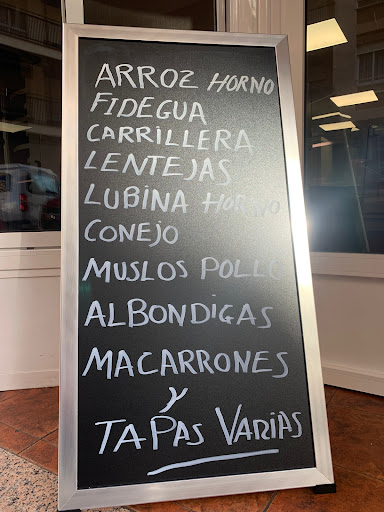 ARROZ HORNO
FIDEGUA
CARRILLERA
LENTEJAS
LUBINA HORNO
CONEJO
MUSLOS POLLO
ALBONDIGAS
MACARRONES
y
TAPAS VARIAS